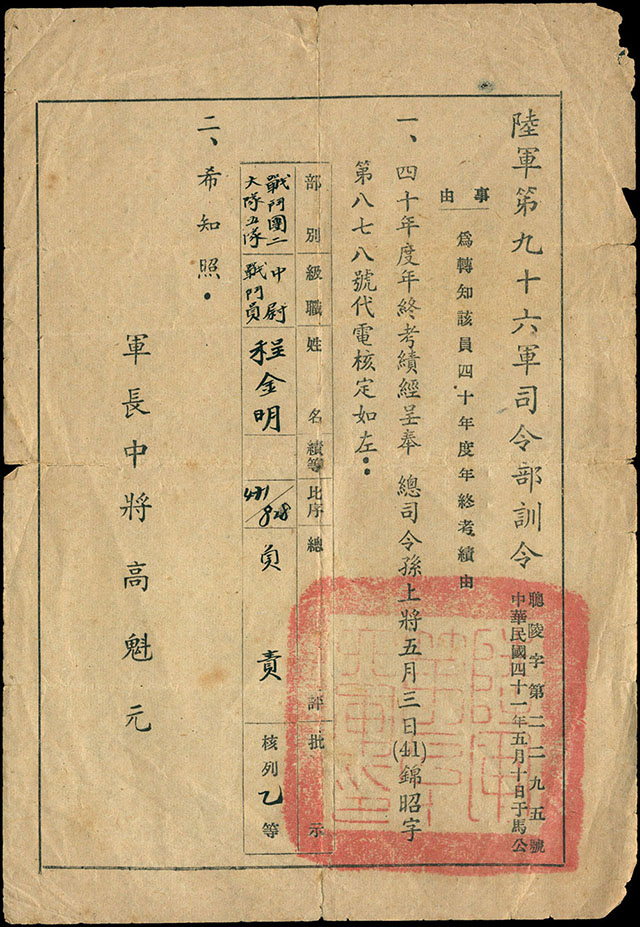 陸軍第九十六軍司令部訓令
聽陵字第二二九五號
中華民國四十一年五月十日于馬公
事由
為轉知該員四十年度年終考績由
一、四十年度年終考績經呈奉 總司令孫上將五月三日(41)錦昭字
第八七八號代電核定如左：
部別
級職
姓名
績等
比序
總評
批示
戰鬥團二
大隊五隊
中尉
戰鬥員
程金明
431/828
負責
核列乙等
二、希知照．
軍長中將高魁元